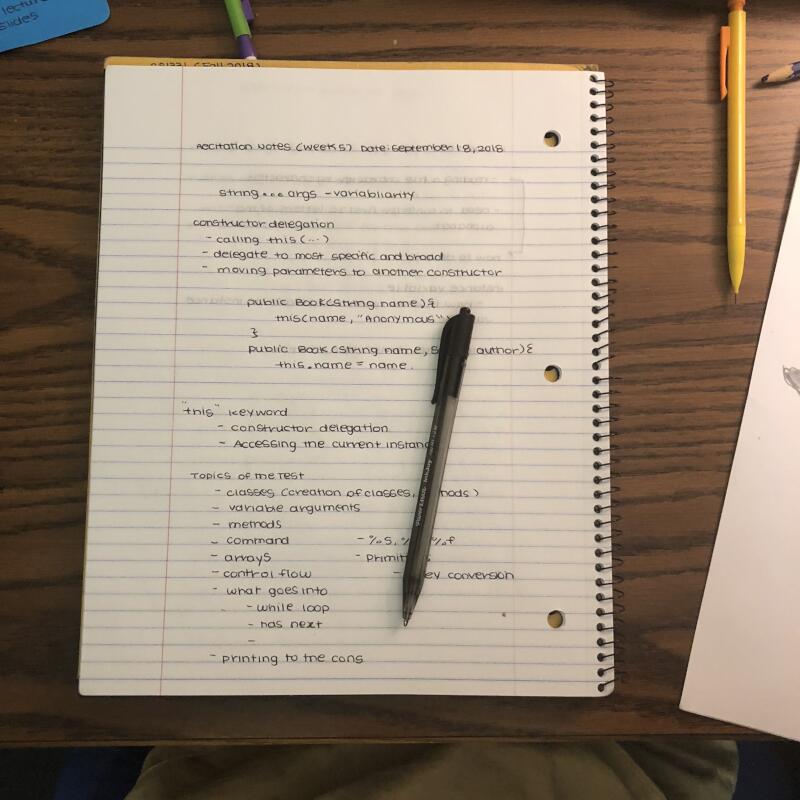 lecture
slides
CS1331 (Fall 2018)
Recitation Notes (Week 5) Date: September 18, 2018
string... args - variabliarity
constructor delegation
- calling this (...)
- delegate to most specific and broad
- moving parameters to another constructor
public Book(String name){
this(name, "Anonymous"
}
public Book (String name, author){
this.name = name.
"this" keyword
- constructor delegation
- Accessing the current instanc
Topics of the Test
- classes (creation of classes, hods)
- variable arguments
- methods
- command - %s, % %f
- arrays - primiti
- control flow - ey conversion
- what goes into
- while loop
- has next
-
- printing to the cons